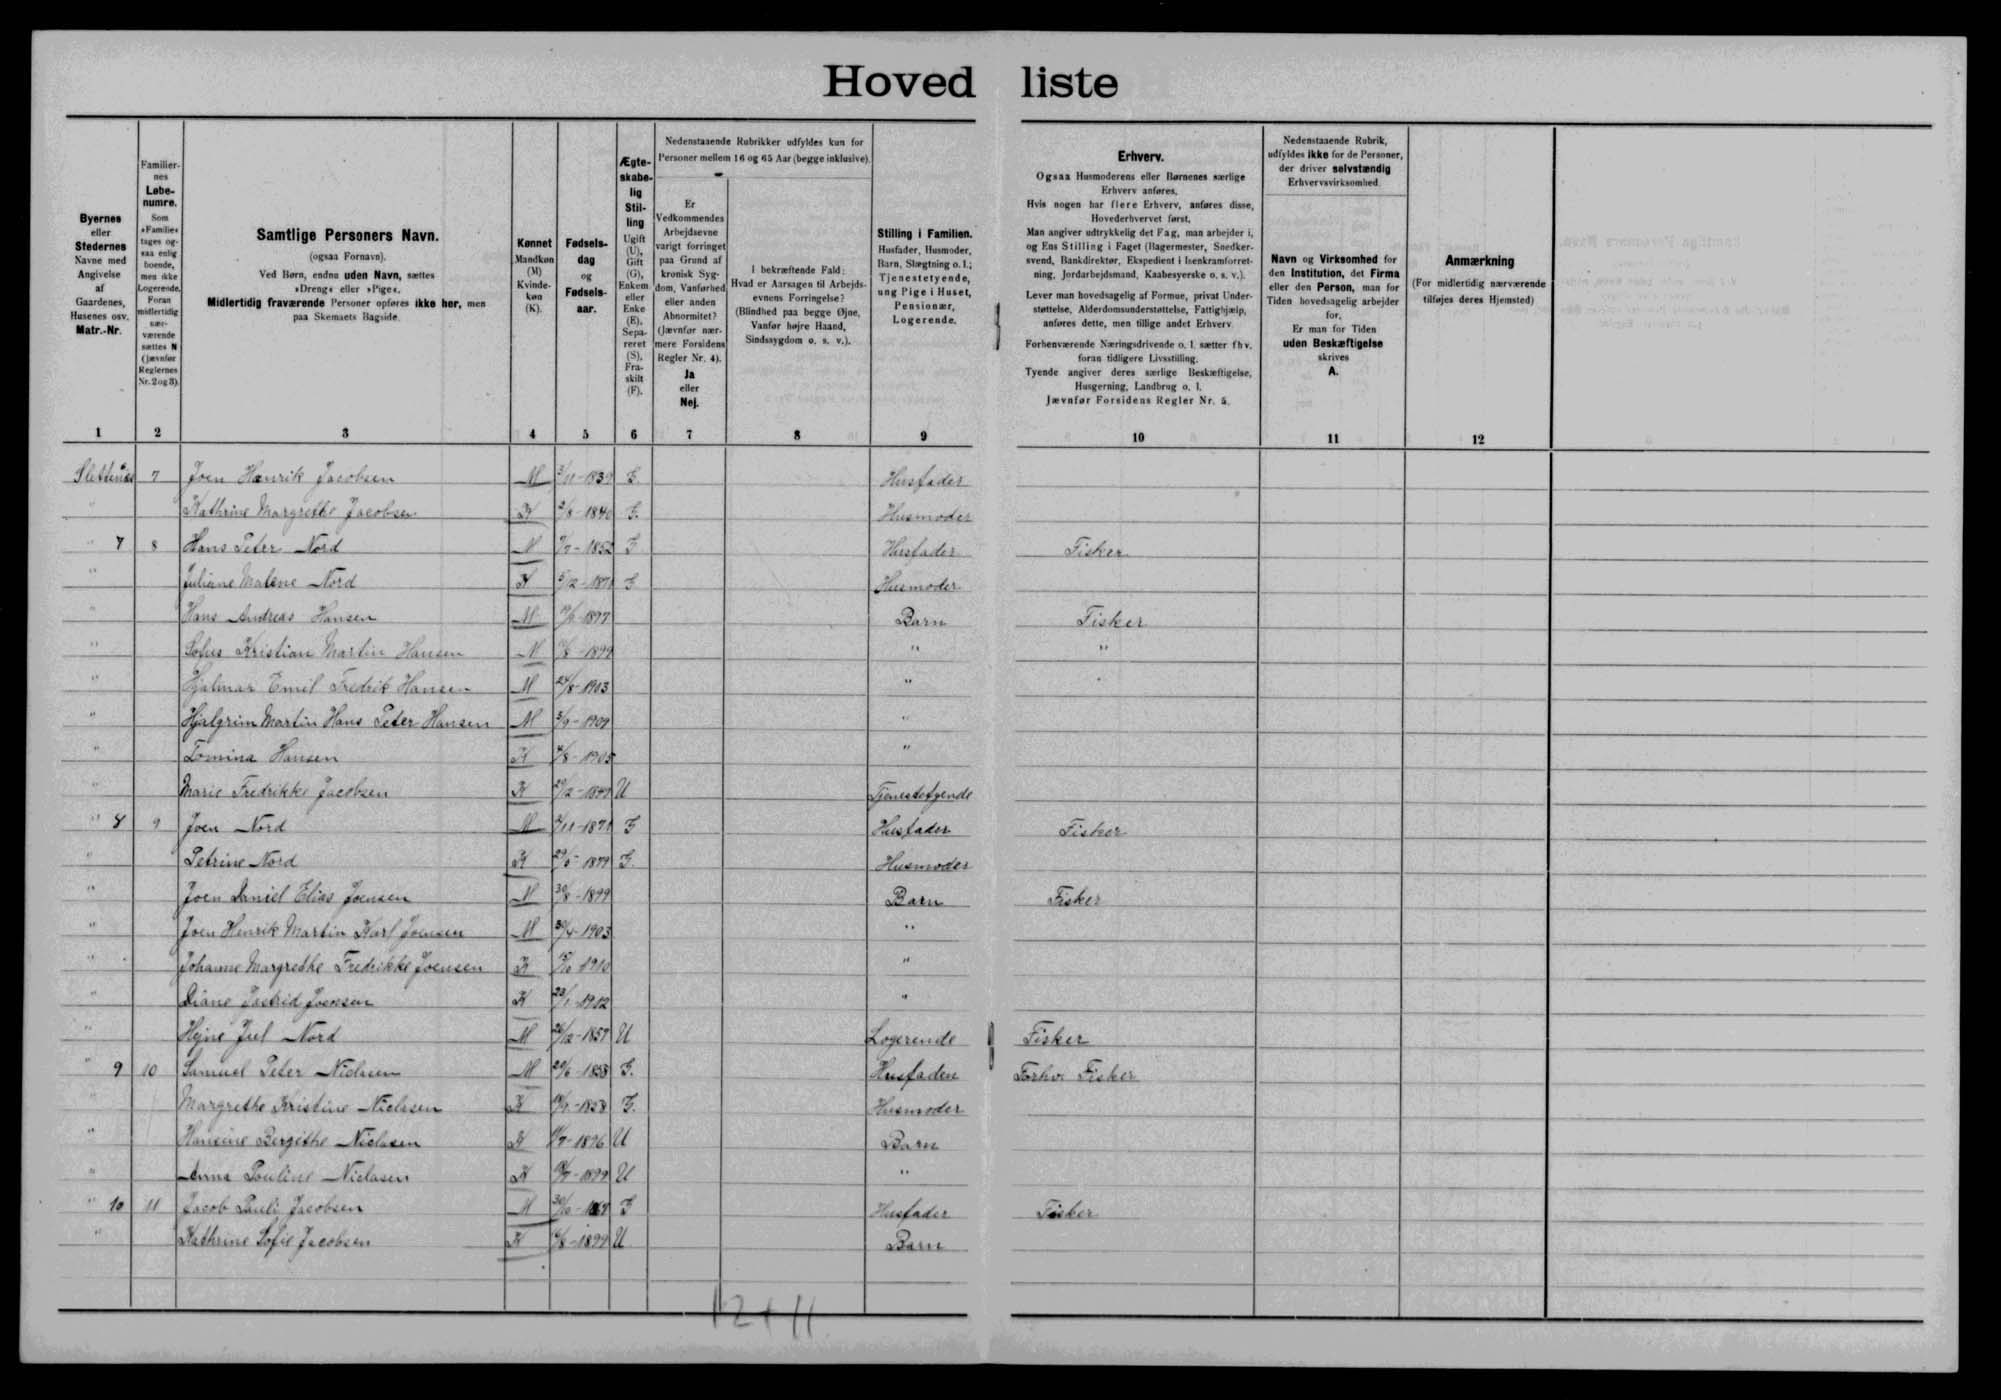 Hovedliste
Byernes
eller
Stedernes
Navne med
Angivelse
af
Gaardenes,
Husenes osv.
Matr.-Nr.
Familier-
nes
Løbe-
numre.
Som
»Familie«
tages og-
saa enlig
boende,
men ikke
Logerende.
Foran
midlertidig
nær-
værende
sættes N
(jævnfør
Reglernes
Nr. 2 og 3).
Samtlige Personers Navn.
(ogsaa Fornavn).
Ved Børn, endnu uden Navn, sættes
»Dreng« eller »Pige«.
Midlertidig fraværende Personer opføres ikke her, men
paa Skemaets Bagside.
Kønnet
Mandkøn
(M)
Kvinde-
køn
(K).
Fødsels-
dag
og
Fødsels-
aar.
Ægte-
skabe-
lig
Stil-
ling
Ugift
(U),
Gift
(G),
Enkem.
eller
Enke
(E),
Sepa-
reret
(S),
Fra-
skilt
(F).
Nedenstaaende Rubrikker udfyldes kun for
Personer mellem 16 og 65 Aar (begge inklusive).
Er
Vedkommendes
Arbejdsevne
varigt forringet
paa Grund af
kronisk Syg-
dom, Vanførhed
eller anden
Abnormitet?
(Jævnfør nær-
mere Forsidens
Regler Nr. 4).
Ja
eller
Nej.
I bekræftende Fald:
Hvad er Aarsagen til Arbejds-
evnens Forringelse?
(Blindhed paa begge Øjne,
Vanfør højre Haand,
Sindssygdom o. s. v.).
Stilling i Familien.
Husfader, Husmoder,
Barn, Slægtning o. l.;
Tjenestetyende,
ung Pige i Huset,
Pensionær,
Logerende.
Erhverv.
Ogsaa Husmoderens eller Børnenes særlige
Erhverv anføres.
Hvis nogen har flere Erhverv, anføres disse,
Hovederhvervet først.
Man angiver udtrykkelig det Fag, man arbejder i,
og Ens Stilling i Faget (Bagermester, Snedker-
svend, Bankdirektør, Ekspedient i Isenkramforret-
ning, Jordarbejdsmand, Kaabesyerske o. s. v.).
Lever man hovedsagelig af Formue, privat Under-
støttelse, Alderdomsunderstøttelse, Fattighjælp,
anføres dette, men tillige andet Erhverv.
Forhenværende Næringsdrivende o. l. sætter fhv.
foran tidligere Livsstilling.
Tyende angiver deres særlige Beskæftigelse,
Husgerning, Landbrug o. l.
Jævnfør Forsidens Regler Nr. 5.
Nedenstaaende Rubrik,
udfyldes ikke for de Personer,
der driver selvstændig
Erhvervsvirksomhed.
Navn og Virksomhed for
den Institution, det Firma
eller den Person, man for
Tiden hovedsagelig arbejder
for.
Er man for Tiden
uden Beskæftigelse
skrives
A.
Anmærkning
(For midlertidig nærværende
tilføjes deres Hjemsted)
1 2 3 4 5 6 7 8 9 10 11 12
7 Joen Henrik Jacobsen M 3/11-1839 G. Husfader
" Kathrine Margrethe Jacobsen K 2/8-1840 G. Husmoder
" 7 8 Hans Peter Nord M 7/7-1852 G Husfader Fisker
" Juliane Malene Nord K 5/12-1871 G Husmoder
" Hans Andreas Hansen M 1897 Barn Fisker
" Sofus Kristian Martin Hansen M 1899 " "
" Hjalmar Emil Fredrik Hansen M 24/8-1903 "
" Hjalgrim Martin Hans Peter Hansen M 3/9-1909 "
" Tomina Hansen K 1905 "
" Marie Fredrikke Jacobsen K 1849 U Tjenestetyende
" 8 9 Joen Nord M 1871 G Husfader Fisker
" Petrine Nord K 29/5-1879 G. Husmoder
" Joen Daniel Elias Joensen M 30/8-1899 Barn Fisker
" Joen Henrik Martin Karl Joensen M 30/4-1903 "
" Johanne Margrethe Fredrikke Joensen K 1910 "
" Diane Jastrid Joensen K 23/1-1912 "
" Hejne Juul Nord M 26/12-1857 U Logerende Fisker
" 9 10 Samuel Peter Niclasen M 29/6-1853 G. Husfader Forhv. Fisker
" Margrethe Kristine Niclasen K 1858 G. Husmoder
" Hansine Bergithe Niclasen K 1896 U Barn
" Anna Pouline Niclasen K 1899 U "
" 10 11 Jacob Pauli Jacobsen M G Husfader Fisker
" Kathrine Sofie Jacobsen K 1899 U Barn
12+11